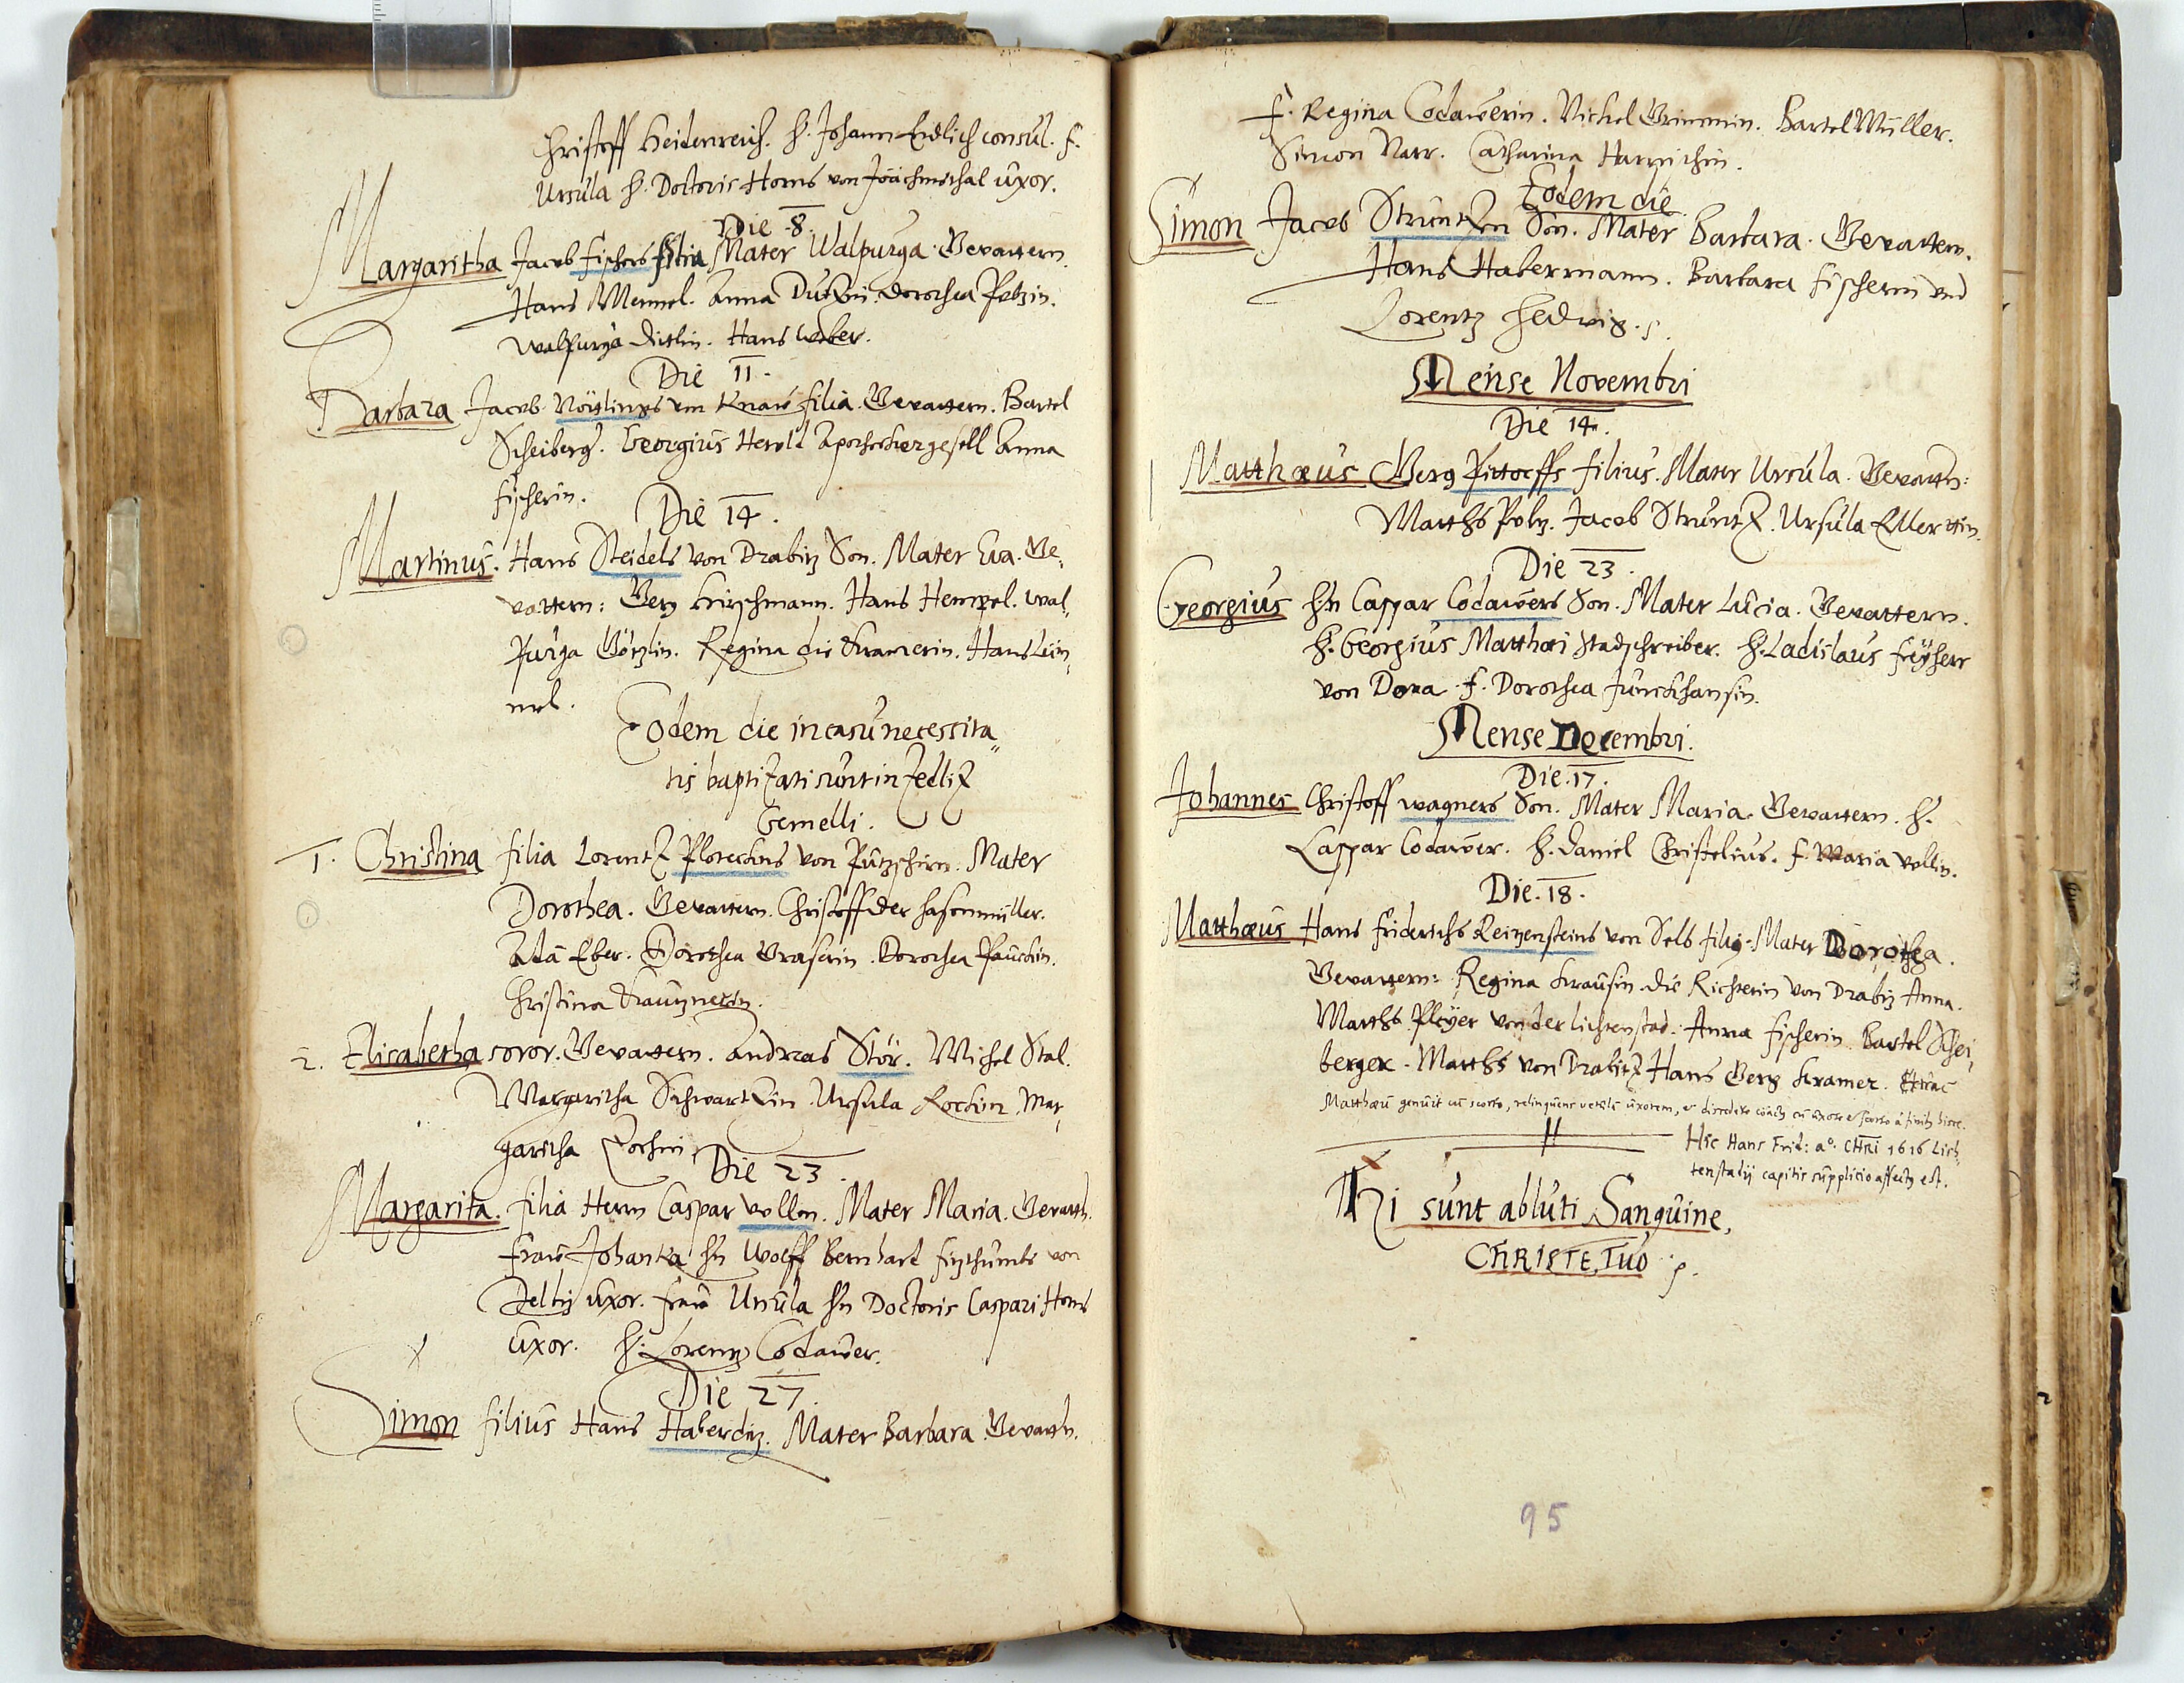 Christoff Heidenreich. H. Johann Endlich consul. F.
Ursula H. Doctoris Horns von Joachimsthal uxor.
Die 8.
Margaritha Jacob Fischers filia Mater Walpurga. Gevattern
Hans Mennel. Anna Dutzin. Dorothea Petzin.
Walpurga Dietlin. Hans Weber.
Die 11.
Barbara Jacob Nörtlings von Knaw filia. Gevattern. Bartel
Scheiberg. Georgius Herold Apotheckergesell Anna
Fischerin.
Die 14.
Martinus. Hans Steidels von Drabitz Son. Mater Eva. Ge,
vattern: Georg Hirschmann. Hans Hempel. Wal,
purga Görtzlin. Regina die Kramerin. Hans Lein,
mel.
Eodem die in casu necessita,,
tis baptizati sunt in Zedlitz
Gemelli.
1. Christina filia Lorentz von Putzschirn. Mater
Dorothea. Gevattern. Christoff der Hasenmüller.
Adam Eber. Dorothea Graserin. Dorothea
Christina
2. Elisabetha soror. Gevattern. Andreas Stör. Michel Stal.
Margaritha Schwartzin. Ursula Mar,
garitha
Die 23.
Margarita. filia Herrn Caspar Vollen. Mater Maria. Gevattn.
Fraw Johanka Hn Wolff Bernhart Fitzthumbs von
uxor. Fraw Ursula Hn Doctoris Caspari Horns
uxor. H. Lorentz Codawer.
Die 27.
Simon filius Hans Haberditz. Mater Barbara. Gevattn.
F. Regina Codawerin. Nickel Grimmin. Bartel Müller.
Simon Narr. Catharina Harnischin.
Eodem die
Simon Jacob Struntzen Son. Mater Barbara. Gevattern.
Hans Habermann. Barbara Fischerin und
Lorentz Hedwig.
Mense Novembri
Die 14.
Matthæus Georg Pittorffs filius. Mater Ursula. Gevattn:
Matths Poltz. Jacob Struntz. Ursula
Die 23.
Georgius Hn Caspar Codawers Son. Mater Lucia. Gevattern.
H. Georgius Matthæi Stadschreiber. H. Ladislaus Freyherr
von Dona. F. Dorothea Junckhansin.
Mense Decembri.
Die. 17.
Johannes Christoff Wagners Son. Mater Maria. Gevattern. H.
Caspar Codawer. H. Daniel Christelius. F. Maria Vollin.
Die. 18.
Matthæus Hans Friderichs Reitzensteins von Selb filius. Mater Dorothea.
Gevattern: Regina Krausin. die Richterin von Drabitz Anna.
Matths Pleyer von der Lichtenstad. Anna Fischerin. Bartel Schei,
berger. Matths von Drabitz Hans Georg Kramer.
Matthæū genuit cū scorto, relinquens uxorem,
Hic Hans Frid: aº. CHRI 1616 Lich,
tenstadij capitis supplicio affectus est.
Hi sunt abluti Sanguine,
CHRISTE, TUO
95